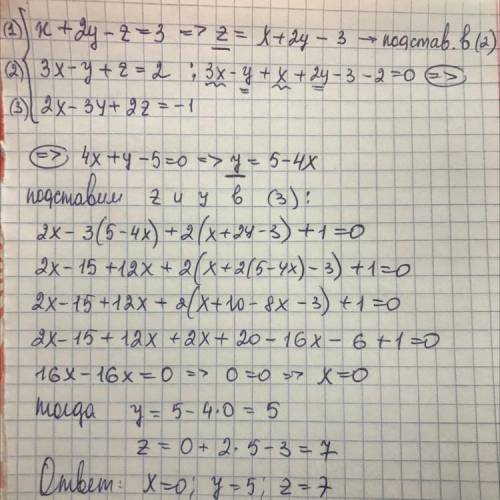 (1) { x + 2y - z = 3 => z = x + 2y - 3 → подстав. в (2)
(2) 3x - y + z = 2 ; 3x - y + x + 2y - 3 - 2 = 0 =>
(3) 2x - 3y + 2z = -1
=> 4x + y - 5 = 0 => y = 5 - 4x
подставим z и y в (3):
2x - 3(5 - 4x) + 2(x + 2y - 3) + 1 = 0
2x - 15 + 12x + 2(x + 2(5 - 4x) - 3) + 1 = 0
2x - 15 + 12x + 2(x + 10 - 8x - 3) + 1 = 0
2x - 15 + 12x + 2x + 20 - 16x - 6 + 1 = 0
16x - 16x = 0 => 0 = 0 => x = 0
Тогда y = 5 - 4·0 = 5
z = 0 + 2·5 - 3 = 7
Ответ: x = 0; y = 5; z = 7